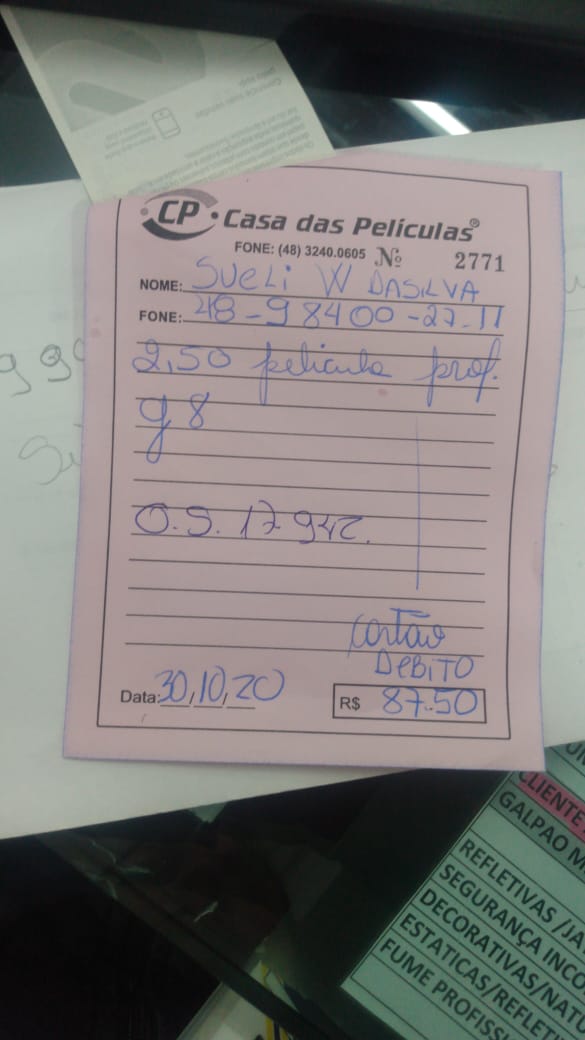 CP · Casa das Películas®
FONE: (48) 3240.0605 Nº 2771
NOME: SUELI W DASILVA
FONE: 48-98400-27-11
2,50 pelicula prof.
g8
O.S. 17.942.
Cartão
DEBITO
Data: 30,10,20 R$ 87.50
CLIENTE
GALPAO M
REFLETIVAS /JA
SEGURANÇA INCO
DECORATIVAS/NATO
ESTATICAS/REFLETI
FUME PROFISSI